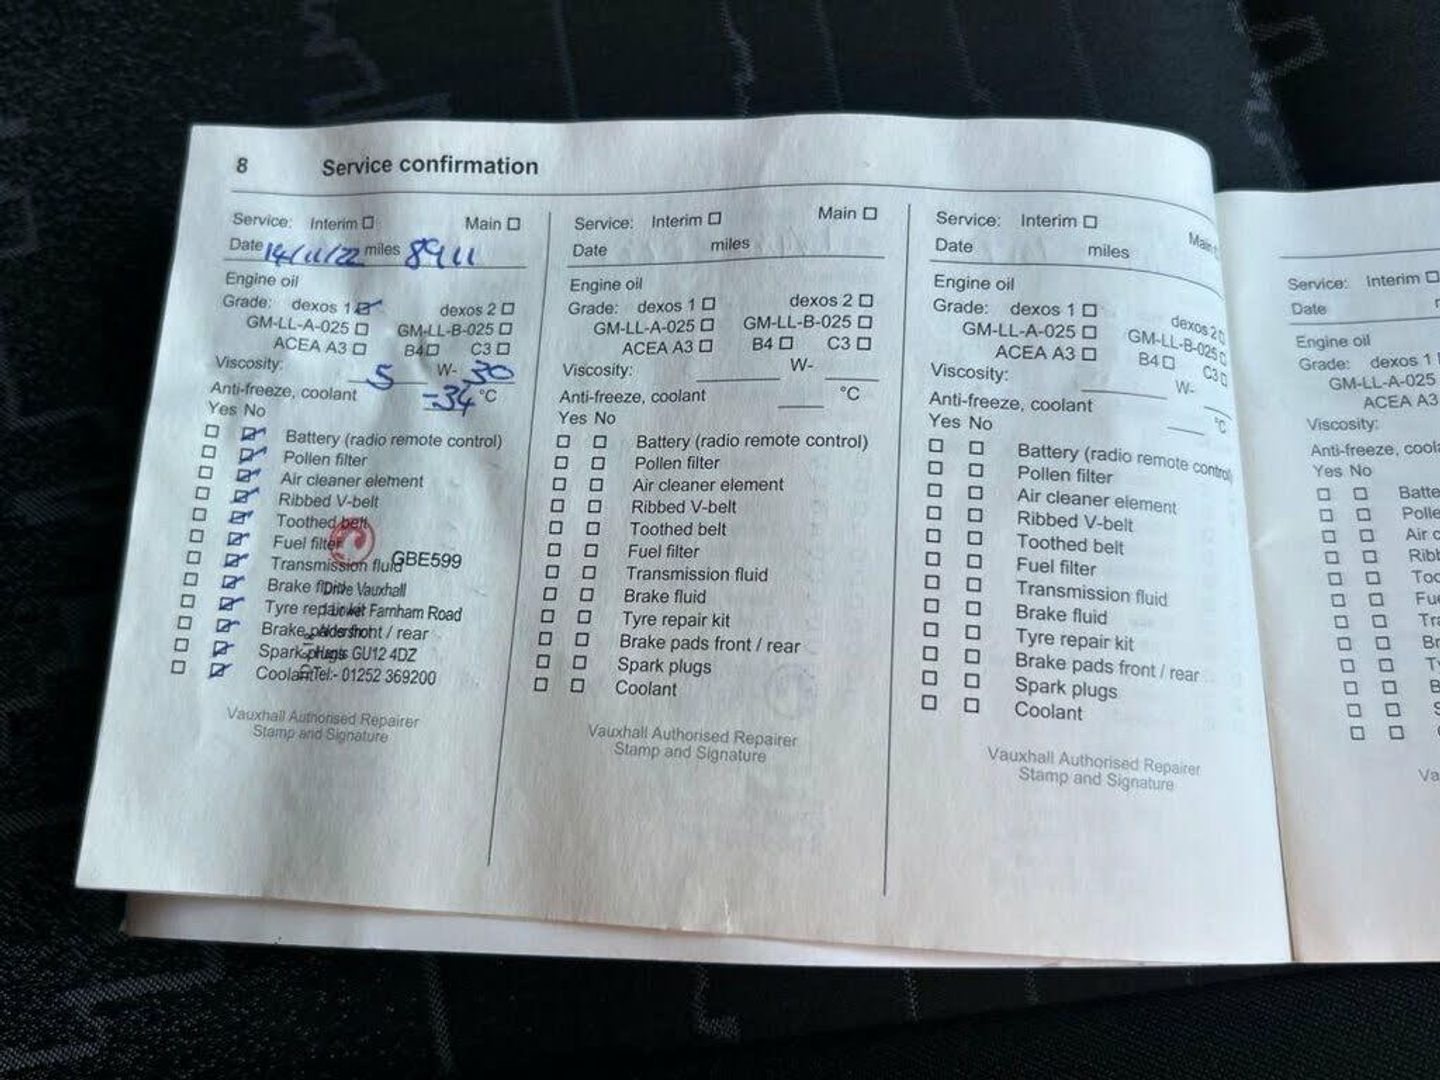 8 Service confirmation
Service: Interim ☐ Main ☐
Date 14/11/22 miles 8911
Engine oil
Grade: dexos 1 ☑ dexos 2 ☐
GM-LL-A-025 ☐ GM-LL-B-025 ☐
ACEA A3 ☐ B4 ☐ C3 ☐
Viscosity: 5 W- 30
Anti-freeze, coolant -34 °C
Yes No
☐ ☑ Battery (radio remote control)
☐ ☑ Pollen filter
☐ ☑ Air cleaner element
☐ ☑ Ribbed V-belt
☐ ☑ Toothed belt
☐ ☑ Fuel filter
☐ ☑ Transmission fluid
GBE599
☐ ☑ Brake fluid
Drive Vauxhall
☐ ☑ Tyre repair kit
Farnham Road
☐ ☑ Brake pads front / rear
☐ ☑ Spark plugs
Hants GU12 4DZ
☐ ☑ Coolant
Tel:- 01252 369200
Vauxhall Authorised Repairer
Stamp and Signature
Service: Interim ☐ Main ☐
Date miles
Engine oil
Grade: dexos 1 ☐ dexos 2 ☐
GM-LL-A-025 ☐ GM-LL-B-025 ☐
ACEA A3 ☐ B4 ☐ C3 ☐
Viscosity: W-
Anti-freeze, coolant °C
Yes No
☐ ☐ Battery (radio remote control)
☐ ☐ Pollen filter
☐ ☐ Air cleaner element
☐ ☐ Ribbed V-belt
☐ ☐ Toothed belt
☐ ☐ Fuel filter
☐ ☐ Transmission fluid
☐ ☐ Brake fluid
☐ ☐ Tyre repair kit
☐ ☐ Brake pads front / rear
☐ ☐ Spark plugs
☐ ☐ Coolant
Vauxhall Authorised Repairer
Stamp and Signature
Service: Interim ☐ Main
Date miles
Engine oil
Grade: dexos 1 ☐ dexos 2 ☐
GM-LL-A-025 ☐ GM-LL-B-025 ☐
ACEA A3 ☐ B4 ☐ C3 ☐
Viscosity: W-
Anti-freeze, coolant °C
Yes No
☐ ☐ Battery (radio remote control)
☐ ☐ Pollen filter
☐ ☐ Air cleaner element
☐ ☐ Ribbed V-belt
☐ ☐ Toothed belt
☐ ☐ Fuel filter
☐ ☐ Transmission fluid
☐ ☐ Brake fluid
☐ ☐ Tyre repair kit
☐ ☐ Brake pads front / rear
☐ ☐ Spark plugs
☐ ☐ Coolant
Vauxhall Authorised Repairer
Stamp and Signature
Service: Interim ☐
Date
Engine oil
Grade: dexos 1
GM-LL-A-025
ACEA A3
Viscosity:
Anti-freeze, coola
Yes No
☐ ☐ Batte
☐ ☐ Polle
☐ ☐ Air c
☐ ☐ Ribb
☐ ☐ Too
☐ ☐ Fue
☐ ☐ Tra
☐ ☐ Br
☐ ☐ Ty
☐ ☐ B
☐ ☐ S
☐ ☐
Va